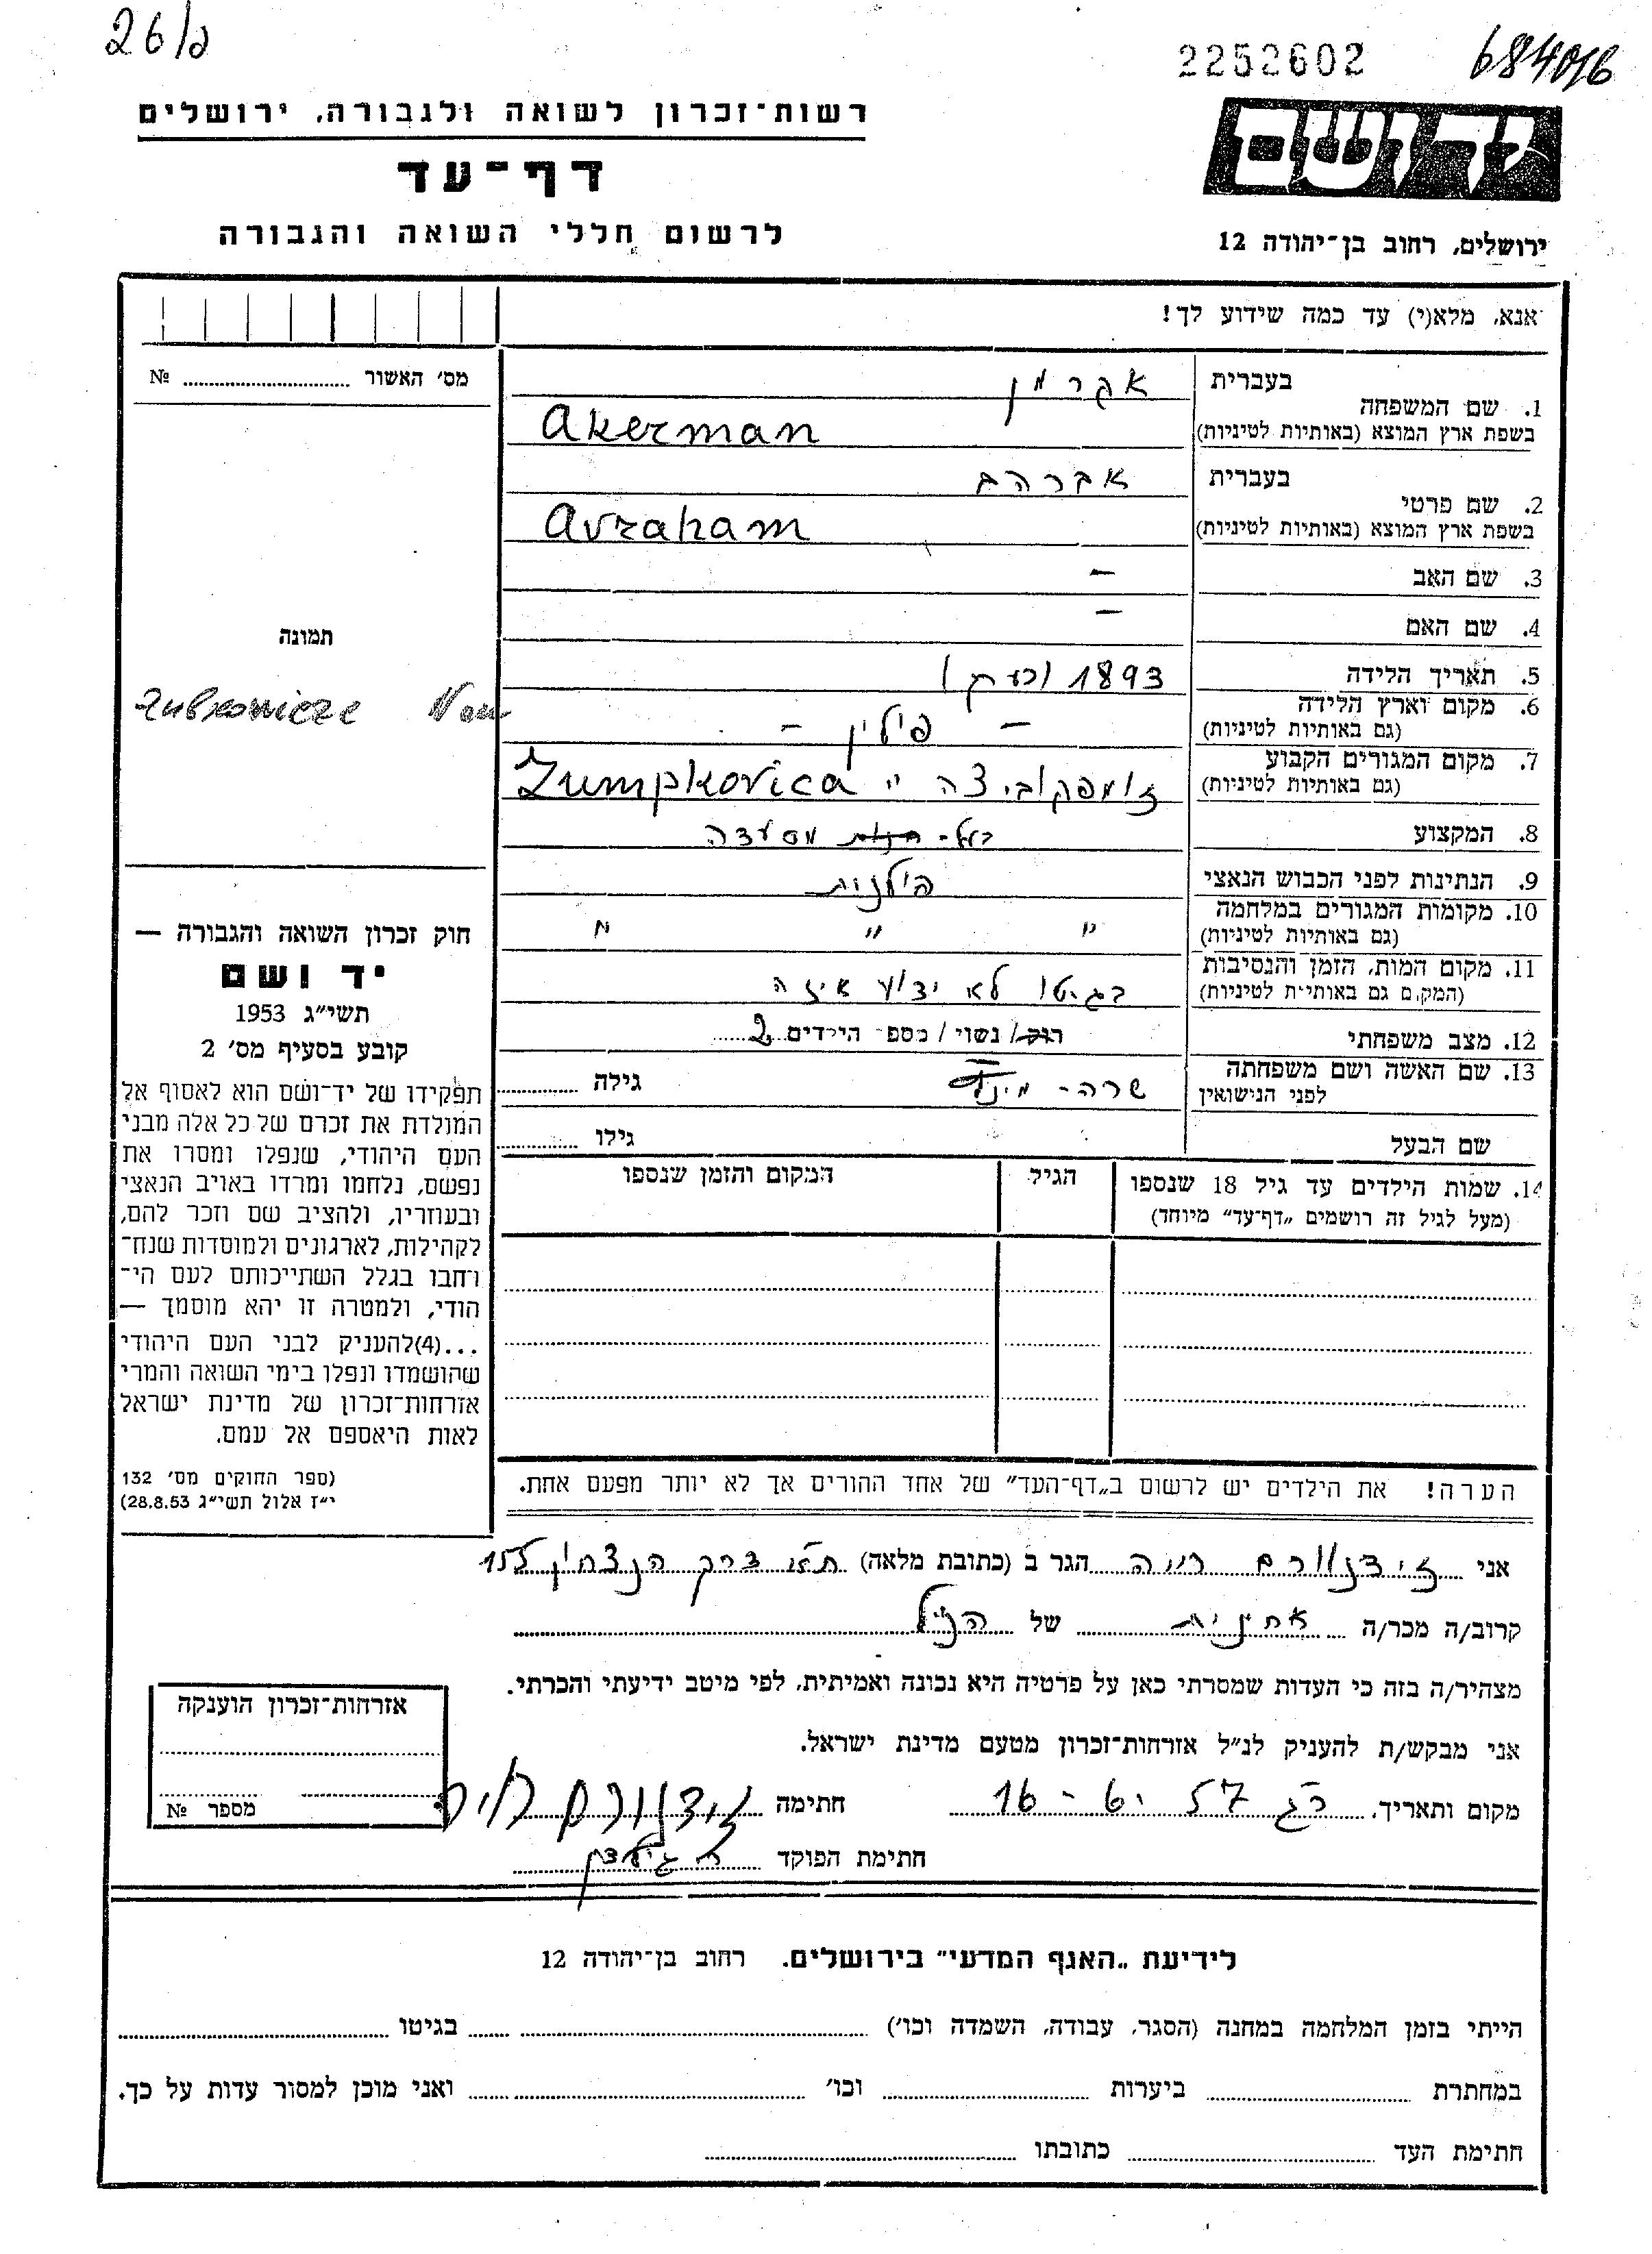 26/ג
2252602
684016
רשות־זכרון לשואה ולגבורה, ירושלים
דף־עד
לרשום חללי השואה והגבורה
ידושם
ירושלים, רחוב בן־יהודה 12
אנא, מלא(י) עד כמה שידוע לך!
מס׳ האשור № 
תמונה
1. שם המשפחה
בעברית אקרמן
בשפת ארץ המוצא (באותיות לטיניות) Akerman
2. שם פרטי
בעברית אברהם
בשפת ארץ המוצא (באותיות לטיניות) Avraham
3. שם האב –
4. שם האם –
5. תאריך הלידה 1893 (כעת)
6. מקום וארץ הלידה
(גם באותיות לטיניות) – פולין –
7. מקום המגורים הקבוע
(גם באותיות לטיניות) זומפקוביצה " Zumpkovica
8. המקצוע בעל- חנות מסעדה
9. הנתינות לפני הכבוש הנאצי פולנית
10. מקומות המגורים במלחמה
(גם באותיות לטיניות) " " "
11. מקום המות, הזמן והנסיבות
(המקום גם באותיות לטיניות) בגיטו לא ידוע איזה
12. מצב משפחתי רוק/ נשוי / מספר הילדים 2
13. שם האשה ושם משפחתה
לפני הנישואין שרה- גילה
שם הבעל גילו
14. שמות הילדים עד גיל 18 שנספו
(מעל לגיל זה רושמים „דף־עד״ מיוחד)
הגיל
המקום והזמן שנספו
הערה! את הילדים יש לרשום ב„דף־העד״ של אחד ההורים אך לא יותר מפעם אחת.
חוק זכרון השואה והגבורה —
יד ושם
תשי״ג 1953
קובע בסעיף מס׳ 2
תפקידו של יד־ושם הוא לאסוף אל
המולדת את זכרם של כל אלה מבני
העם היהודי, שנפלו ומסרו את
נפשם, נלחמו ומרדו באויב הנאצי
ובעוזריו, ולהציב שם וזכר להם,
לקהילות, לארגונים ולמוסדות שנח־
רחבו בגלל השתייכותם לעם הי־
הודי, ולמטרה זו יהא מוסמך —
...(4)להעניק לבני העם היהודי
שהושמדו ונפלו בימי השואה והמרי
אזרחות־זכרון של מדינת ישראל
לאות היאספם אל עמם.
(ספר החוקים מס׳ 132
י״ז אלול תשי״ג 28.8.53)
אני זידנוורם חיה הגר ב (כתובת מלאה) ת"א דרך הנצחון 155
קרוב/ה מכר/ה אחינית של הנ"ל
מצהיר/ה בזה כי העדות שמסרתי כאן על פרטיה היא נכונה ואמיתית, לפי מיטב ידיעתי והכרתי.
אני מבקש/ת להעניק לנ״ל אזרחות־זכרון מטעם מדינת ישראל.
מקום ותאריך, 16 - 6 - 57 חתימה זידנוורם חיה
חתימת הפוקד
אזרחות־זכרון הוענקה
מספר №
לידיעת „האגף המדעי״ בירושלים. רחוב בן־יהודה 12
הייתי בזמן המלחמה במחנה (הסגר, עבודה, השמדה וכו׳) בגיטו
במחתרת ביערות וכו׳ ואני מוכן למסור עדות על כך.
חתימת העד כתובתו